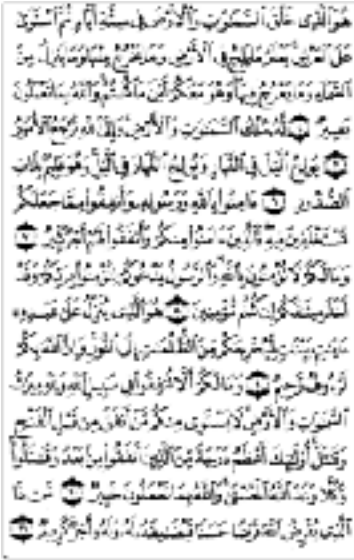 هُوَ ٱلَّذِى خَلَقَ ٱلسَّمَـٰوَٰتِ وَٱلْأَرْضَ فِى سِتَّةِ أَيَّامٍ ثُمَّ ٱسْتَوَىٰ
عَلَى ٱلْعَرْشِ يَعْلَمُ مَا يَلِجُ فِى ٱلْأَرْضِ وَمَا يَخْرُجُ مِنْهَا وَمَا يَنزِلُ مِنَ
ٱلسَّمَآءِ وَمَا يَعْرُجُ فِيهَا وَهُوَ مَعَكُمْ أَيْنَ مَا كُنتُمْ وَٱللَّهُ بِمَا تَعْمَلُونَ
بَصِيرٌ ٤ لَّهُۥ مُلْكُ ٱلسَّمَـٰوَٰتِ وَٱلْأَرْضِ وَإِلَى ٱللَّهِ تُرْجَعُ ٱلْأُمُورُ
٥ يُولِجُ ٱلَّيْلَ فِى ٱلنَّهَارِ وَيُولِجُ ٱلنَّهَارَ فِى ٱلَّيْلِ وَهُوَ عَلِيمٌۢ بِذَاتِ
ٱلصُّدُورِ ٦ ءَامِنُوا۟ بِٱللَّهِ وَرَسُولِهِۦ وَأَنفِقُوا۟ مِمَّا جَعَلَكُم
مُّسْتَخْلَفِينَ فِيهِ فَٱلَّذِينَ ءَامَنُوا۟ مِنكُمْ وَأَنفَقُوا۟ لَهُمْ أَجْرٌ كَبِيرٌ ٧
وَمَا لَكُمْ لَا تُؤْمِنُونَ بِٱللَّهِ وَٱلرَّسُولُ يَدْعُوكُمْ لِتُؤْمِنُوا۟ بِرَبِّكُمْ وَقَدْ
أَخَذَ مِيثَـٰقَكُمْ إِن كُنتُم مُّؤْمِنِينَ ٨ هُوَ ٱلَّذِى يُنَزِّلُ عَلَىٰ عَبْدِهِۦٓ
ءَايَـٰتٍۭ بَيِّنَـٰتٍ لِّيُخْرِجَكُم مِّنَ ٱلظُّلُمَـٰتِ إِلَى ٱلنُّورِ وَإِنَّ ٱللَّهَ بِكُمْ
لَرَءُوفٌ رَّحِيمٌ ٩ وَمَا لَكُمْ أَلَّا تُنفِقُوا۟ فِى سَبِيلِ ٱللَّهِ وَلِلَّهِ مِيرَٰثُ
ٱلسَّمَـٰوَٰتِ وَٱلْأَرْضِ لَا يَسْتَوِى مِنكُم مَّنْ أَنفَقَ مِن قَبْلِ ٱلْفَتْحِ
وَقَـٰتَلَ أُو۟لَـٰٓئِكَ أَعْظَمُ دَرَجَةً مِّنَ ٱلَّذِينَ أَنفَقُوا۟ مِنۢ بَعْدُ وَقَـٰتَلُوا۟
وَكُلًّا وَعَدَ ٱللَّهُ ٱلْحُسْنَىٰ وَٱللَّهُ بِمَا تَعْمَلُونَ خَبِيرٌ ١٠ مَّن ذَا
ٱلَّذِى يُقْرِضُ ٱللَّهَ قَرْضًا حَسَنًا فَيُضَـٰعِفَهُۥ لَهُۥ وَلَهُۥٓ أَجْرٌ كَرِيمٌ ١١